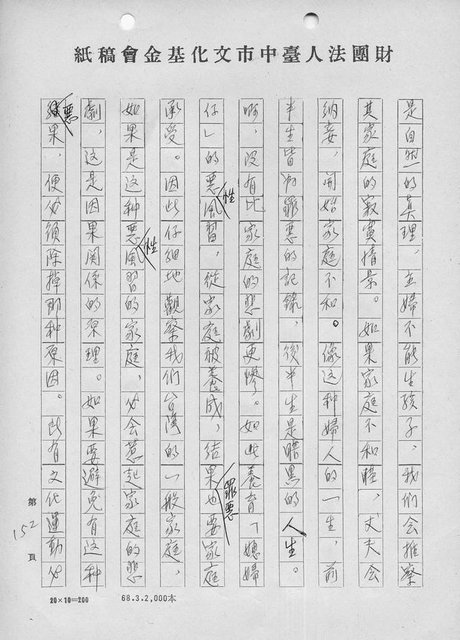 財團法人臺中市文化基金會稿紙
是自然的真理，立婦不能生孩子，我們会推察
其家庭的寂寞情景。如果家庭不和睦，丈夫会
納妾，開始家庭不和。像这种婦人的一生，前
半生皆為罪悪的記錄，後半生是暗黑的人生。
啊，没有比家庭的悲劇更慘。如此養育「媳婦
仔」的悪性風習，從家庭被養成，結果罪悪也要家庭
承受。因此仔細地觀察我們台湾的一般家庭，
如果是这种悪性風習的家庭，必会惹起家庭的悲
劇，这是因果関係的原理。如果要避免有这种
悪果，便必須除掉那种原因。此有文化運動必
第152頁
20×10=200
68.3.2,000本